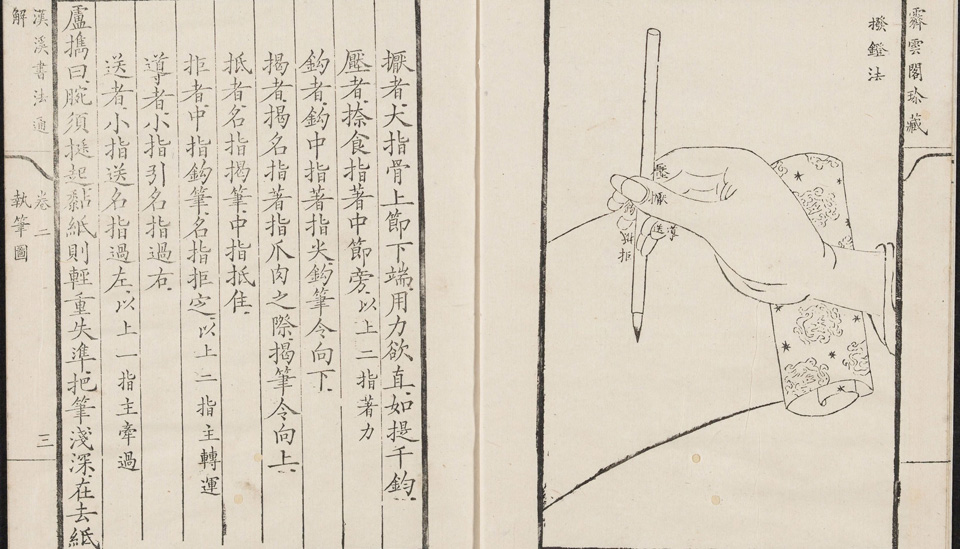 雲閣珍藏
撥鐙法
壓
擫
鈎
拒
導
送
擫者大指骨上節下端用力欲直如提千鈞
壓者捺食指著中節旁以上二指著力
鈎者鈎中指著指尖鈎筆令向下
揭者揭名指著指爪肉之際揭筆令向上
抵者名指揭筆中指抵住
拒者中指鈎筆名指拒定以上二指主轉運
導者小指引名指過右
送者小指送名指過左以上一指主牽過
盧擕曰腕須挺起黏紙則輕重失準把筆淺深在去紙
漢溪書法通
解
卷二
執筆圖
三